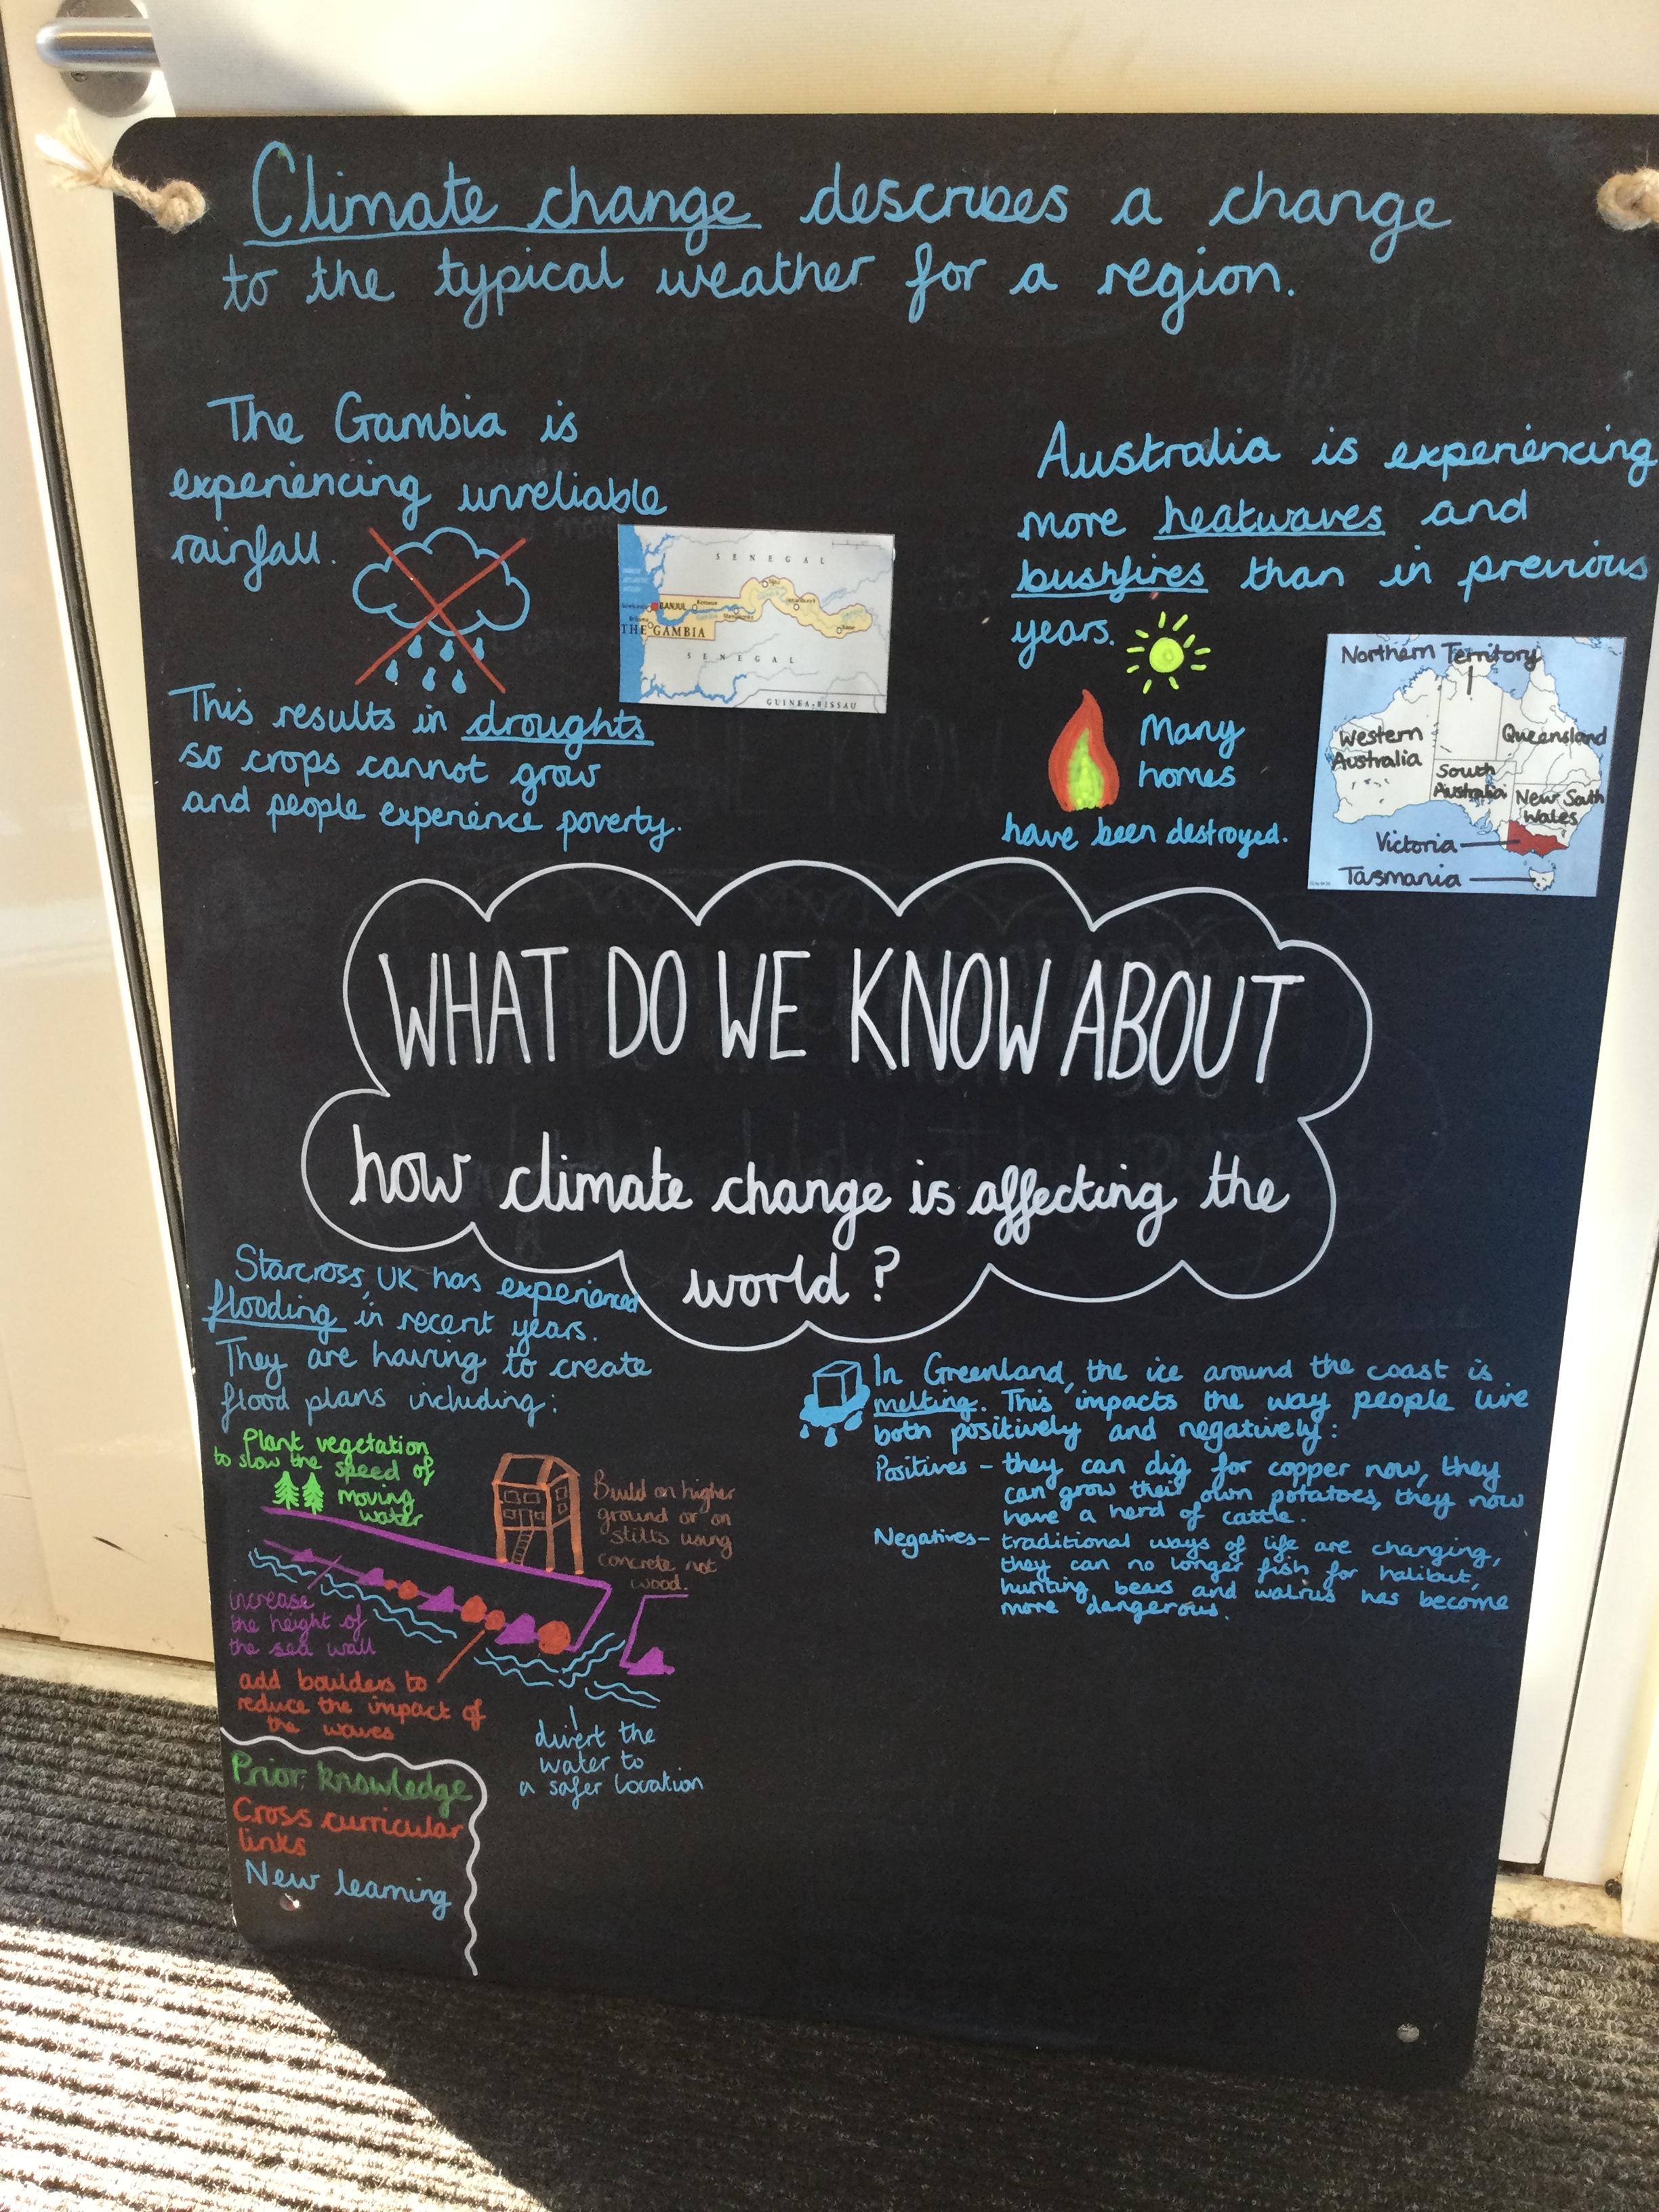 Climate change describes a change
to the typical weather for a region.
The Gambia is
experiencing unreliable
rainfall.
SENEGAL
BANJUL
THE GAMBIA
SENEGAL
GUINEA-BISSAU
This results in droughts
so crops cannot grow
and people experience poverty.
Australia is experiencing
more heatwaves and
bushfires than in previous
years.
Many
homes
have been destroyed.
Northern Territory
Western
Australia
Queensland
South
Australia
New South
Wales
Victoria
Tasmania
WHAT DO WE KNOW ABOUT
how climate change is affecting the
world?
Starcross, UK has experienced
flooding in recent years.
They are having to create
flood plans including:
Plant vegetation
to slow the speed of
moving
water
Build on higher
ground or on
stilts using
concrete not
wood.
increase
the height of
the sea wall
add boulders to
reduce the impact of
the waves
divert the
water to
a safer location
In Greenland, the ice around the coast is
melting. This impacts the way people live
both positively and negatively:
Positives - they can dig for copper now, they
can grow their own potatoes, they now
have a herd of cattle.
Negatives - traditional ways of life are changing,
they can no longer fish for halibut,
hunting bears and walrus has become
more dangerous.
Prior knowledge
Cross curricular
links
New learning